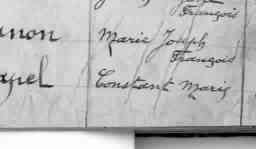 François
anon Marie Joseph
François
apel Constant Marie